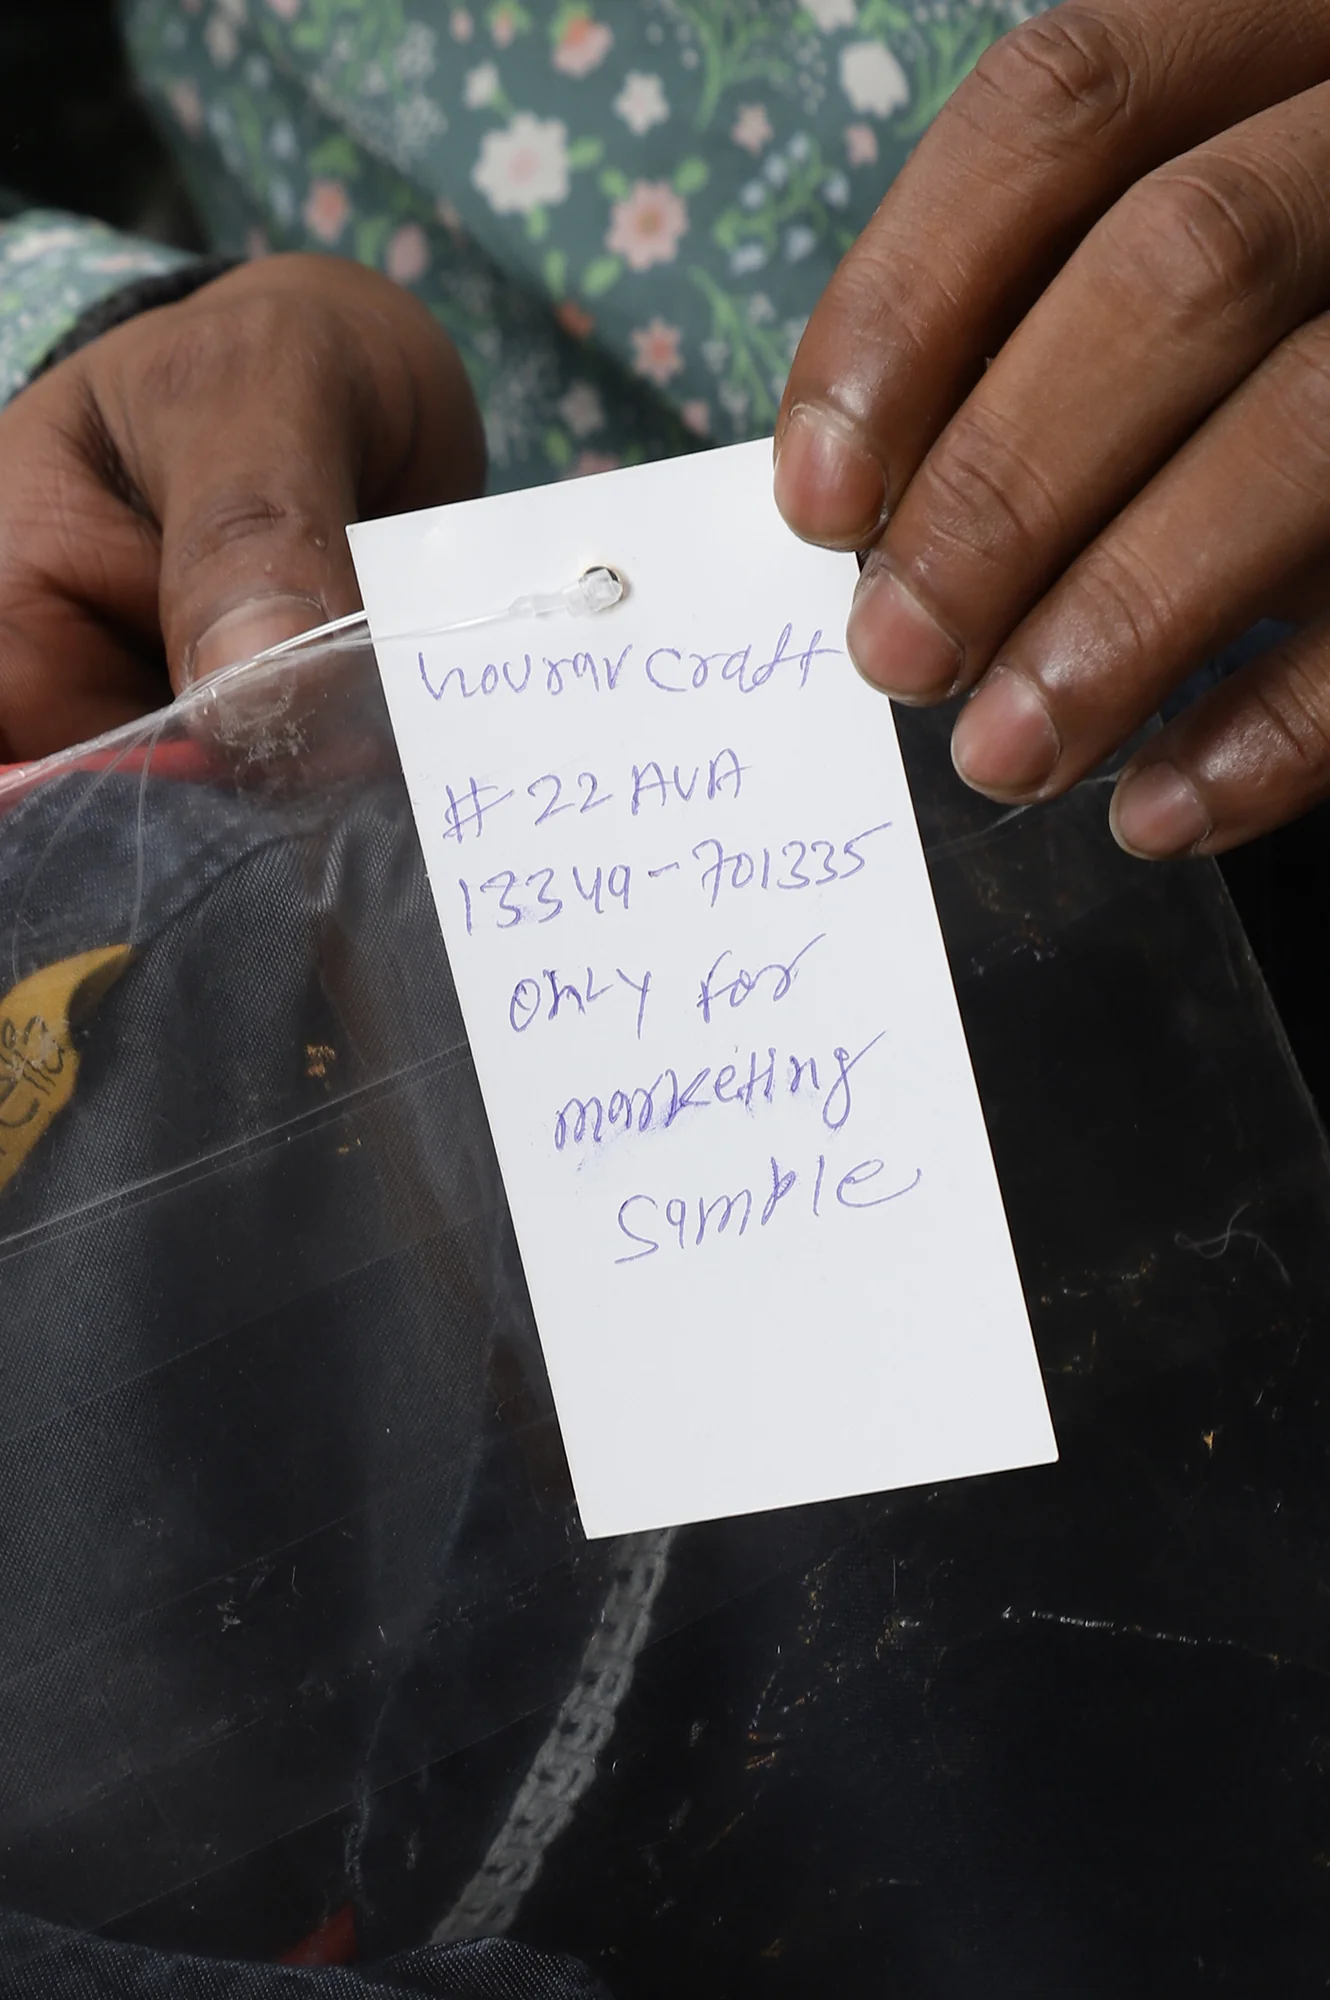 novrar Craft
# 22 AVA
13349-701335
Only for
marketing
Sample